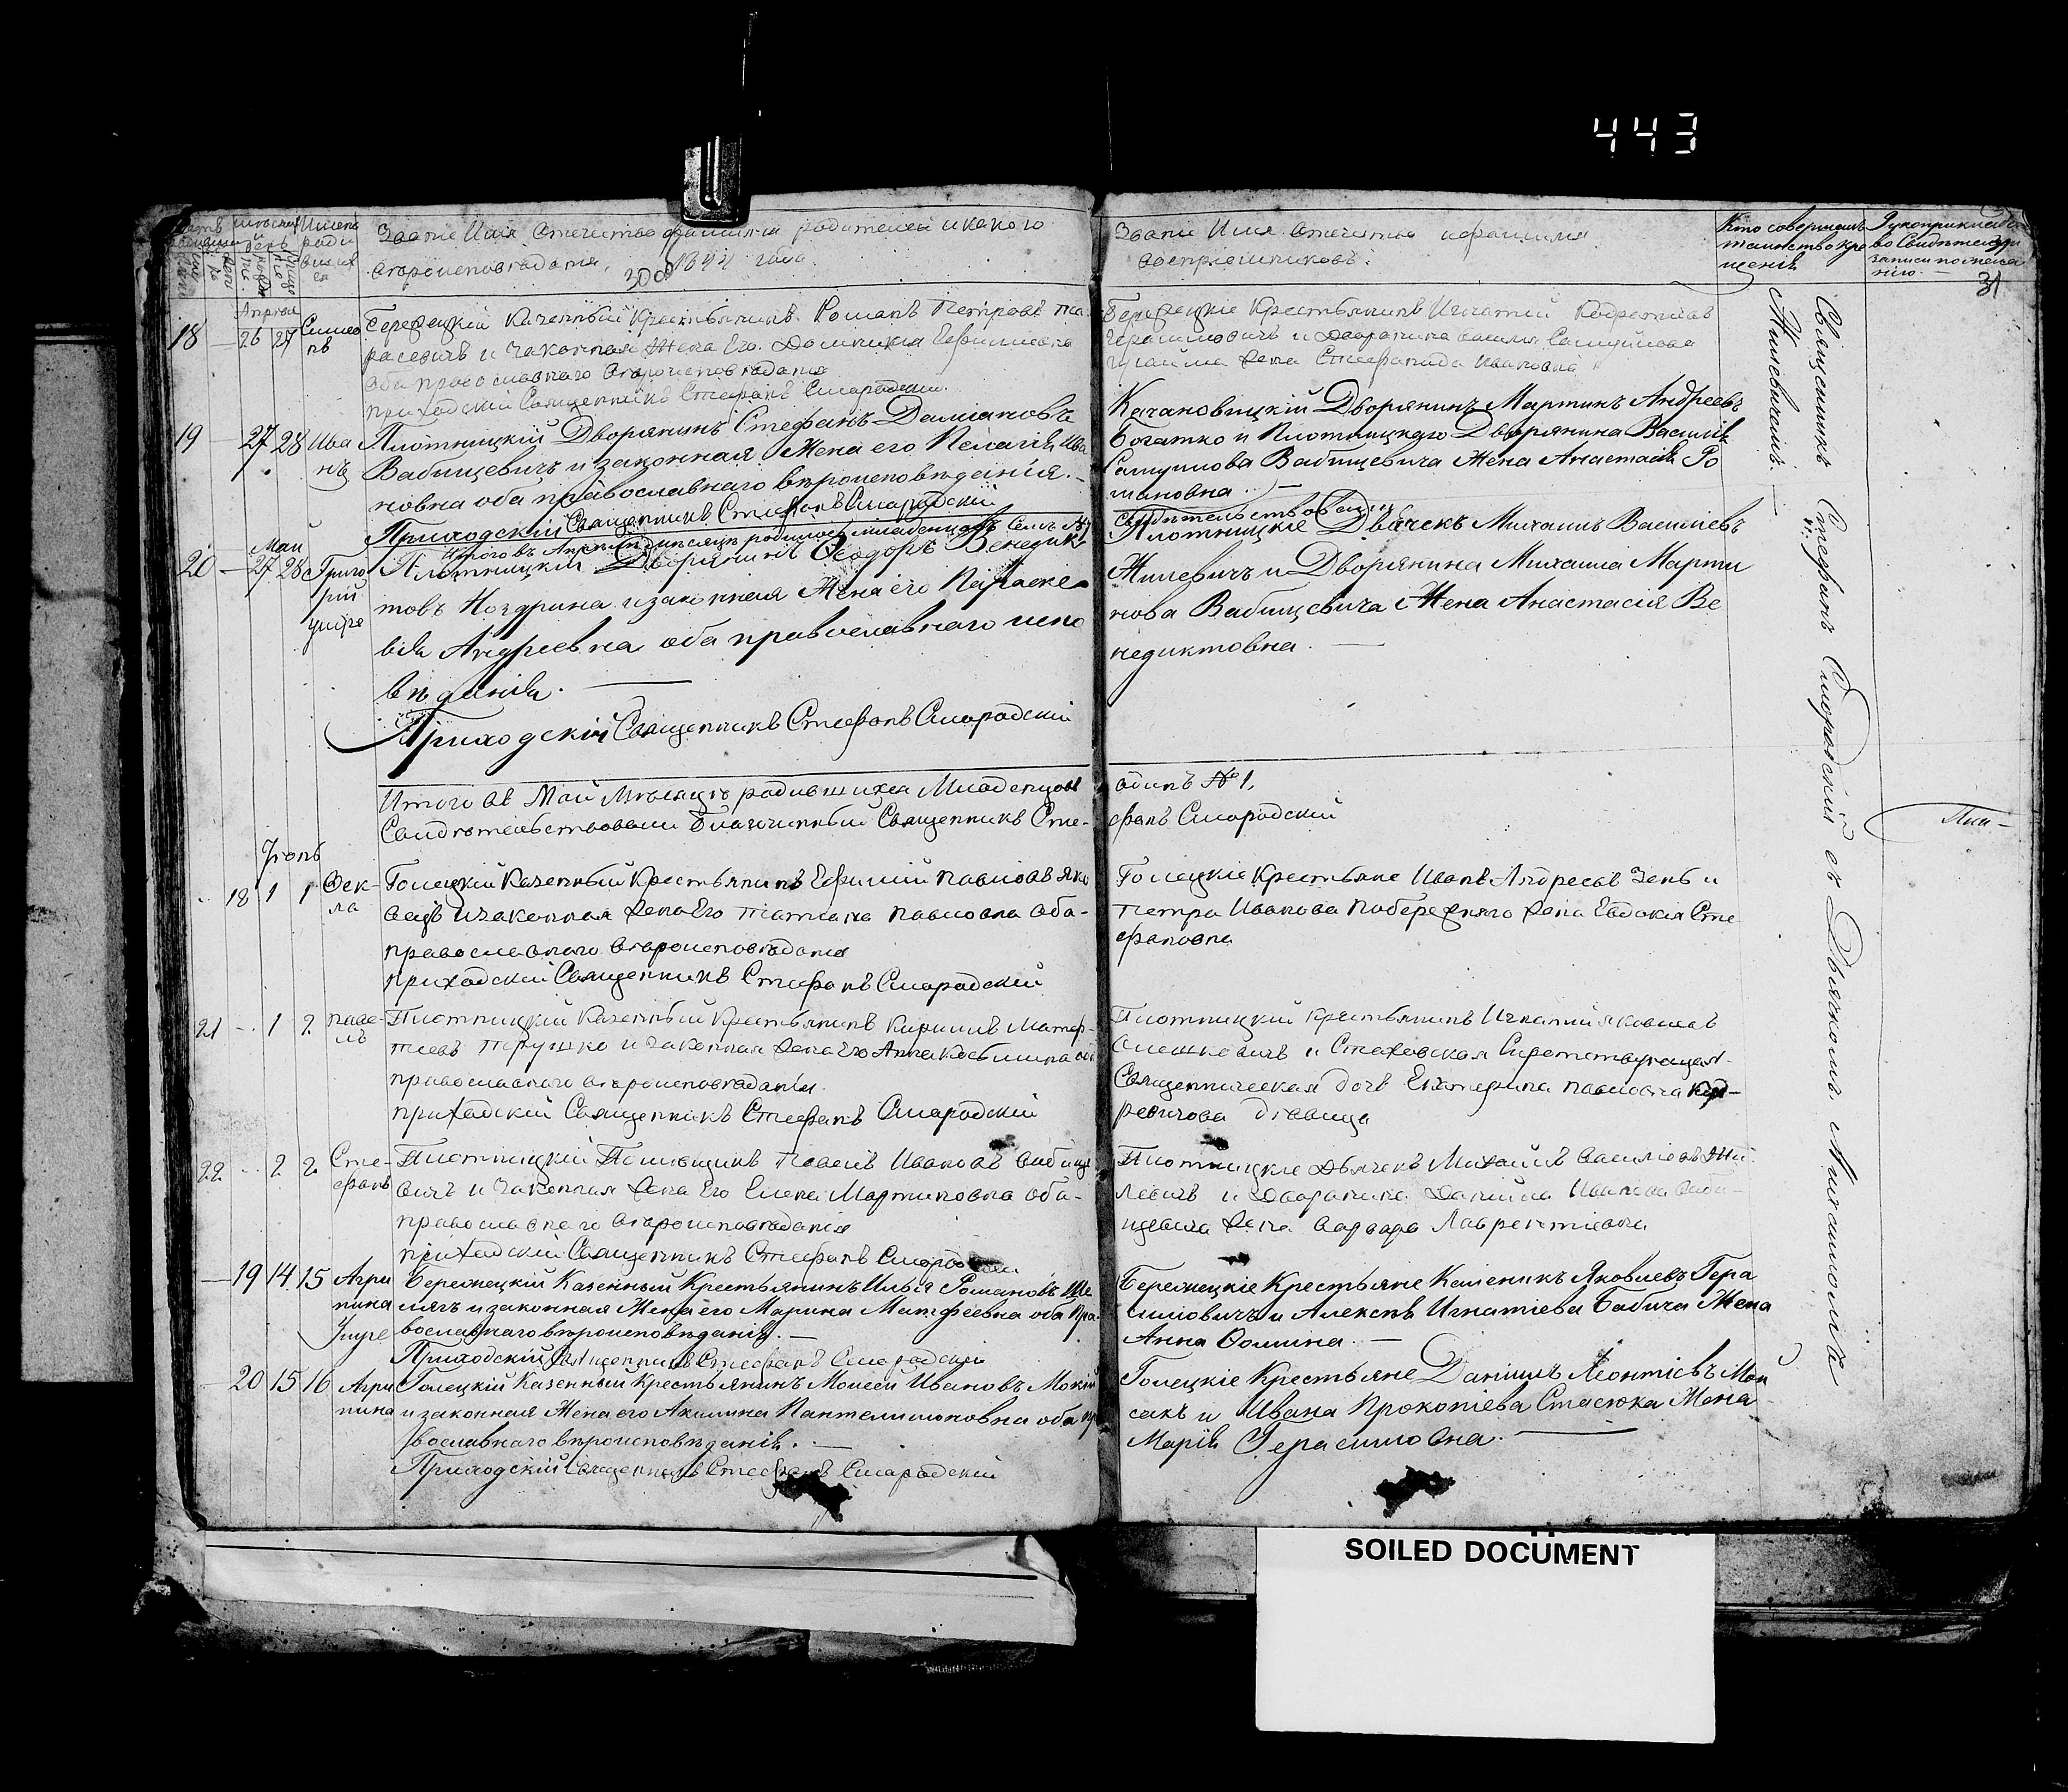 443
Званіе Имя Отечество фамилія родителей и какого
вѣроисповѣданія, 1844 года
Званіе Имя Отечество и фамилия
воспріемниковъ.
Кто совершалъ
таинство кре
щенія
Рукоприкладс
во Свидѣтелей
записи по жела
нію.
31
Апрѣля
18 — 26 27 Симео
нъ
Бережецкій Казенный Крестьянинъ Романъ Петровъ
и Законная Жена Его Домникія Евфимиевна
оба православнаго вѣроисповѣданія
приходскій Священникъ Стефанъ Смородскій
Бережецкіе Крестьянинъ Игнатій
Герасимовичъ и Дворянина Василія Самуйлова
Жена Стефанида Ивановна
19 — 27 28 Ива
нъ
Плотницкій Дворянинъ Стефанъ Дамиановъ
Вабищевичъ и законная Жена его Пелагія Ива
новна оба православнаго вѣроисповѣданія. —
Приходскій Священникъ Стефанъ Смородскій
Качановицкій Дворянинъ Мартинъ Андреевъ
Богатко и Плотницкаго Дворянина Василія
Самуилова Вабищевича Жена Анастасія Ро
мановна. —
Итого въ Апрѣлѣ Мѣсяцѣ родилось младенцовъ
свидѣтельствовали
Май
20 — 27 28 Григо
рій
умре
Плотницкій Дворянинъ Ѳеодоръ Венедик
товъ Ноздрина и законная Жена его Параске
вія Андреевна оба православнаго испо
вѣданія. —
Приходскій Священникъ Стефанъ Смородскій
Плотницкіе Дьячекъ Михаилъ Василіевъ
Жилевичъ и Дворянина Михаила Марти
нова Вабищевича Жена Анастасія Ве
недиктовна. —
Итого въ Май Мѣсяцъ родившихся Младенцовъ
одинъ № 1.
Свидѣтельствовали Благочинный Священникъ Сте-
фанъ Смородскій
Іюнь
18 1 1 Ѳек-
ла
Голецкій Казенный Крестьянинъ Ефимій Павловъ Яко
вецъ и Законная Жена Его Татіана Павловна оба-
православнаго вѣроисповѣданія
приходскій Священникъ Стефанъ Смородскій
Голецкіе Крестьяне Иванъ Андреевъ Зень и
Петра Иванова Побережняго Жена Евдокія Сте
фановна
21 — 1 2 Паве-
лъ
Плотницкій Казенный Крестьянинъ Кирилъ Матѳ-
иевъ Трушко и Законная Жена Его Анна
православнаго вѣроисповѣданія
приходскій Священникъ Стефанъ Смородскій
Плотницкій Крестьянинъ Игнатий Яковлевъ
Олешковичъ и Стаховская Сиротствующая
Священническая дочь Екатерина Павловна
дѣвица
22 — 2 2 Сте-
фанъ
Плотницкій Помѣщикъ Павелъ Ивановъ Вабище
вичъ и Законная Жена Его Елена Мартиновна оба-
православнаго вѣроисповѣданія
приходскій Священникъ Стефанъ Смородскій
Плотницкіе Дьячекъ Михаилъ Василіевъ Жи
левичъ и Дворянина Даніила Иванова Ваби-
щевича Жена Варвара Лаврентіевна
— 19 14 15 Агри
пина
Умре
Бережецкій Казенный Крестьянинъ Илья Романовъ Ше
лягъ и законная Жена его Марина Матфеевна оба Пра-
вославнаго вѣроисповѣданія. —
Приходскій Священникъ Стефанъ Смородскій
Бережецкіе Крестьяне Каленикъ Яковлевъ Гера
симовичъ и Алексѣя Игнатіева Бабича Жена
Анна Ѳомина. —
20 15 16 Агри
пина
Голецкій Казенный Крестьянинъ Моисей Ивановъ
и законная Жена его Акилина Пантелимоновна оба пра
вославнаго вѣроисповѣданія. —
Приходскій Священникъ Стефанъ Смородскій
Голецкіе Крестьяне Даніилъ Леонтіевъ Мой
сакъ и Ивана Прокопіева Стасюка Жена
Марія Герасимовна. —
Священникъ Стефанъ Смородскій съ Дьячкомъ Михаиломъ
Жилевичемъ. —
SOILED DOCUMENT